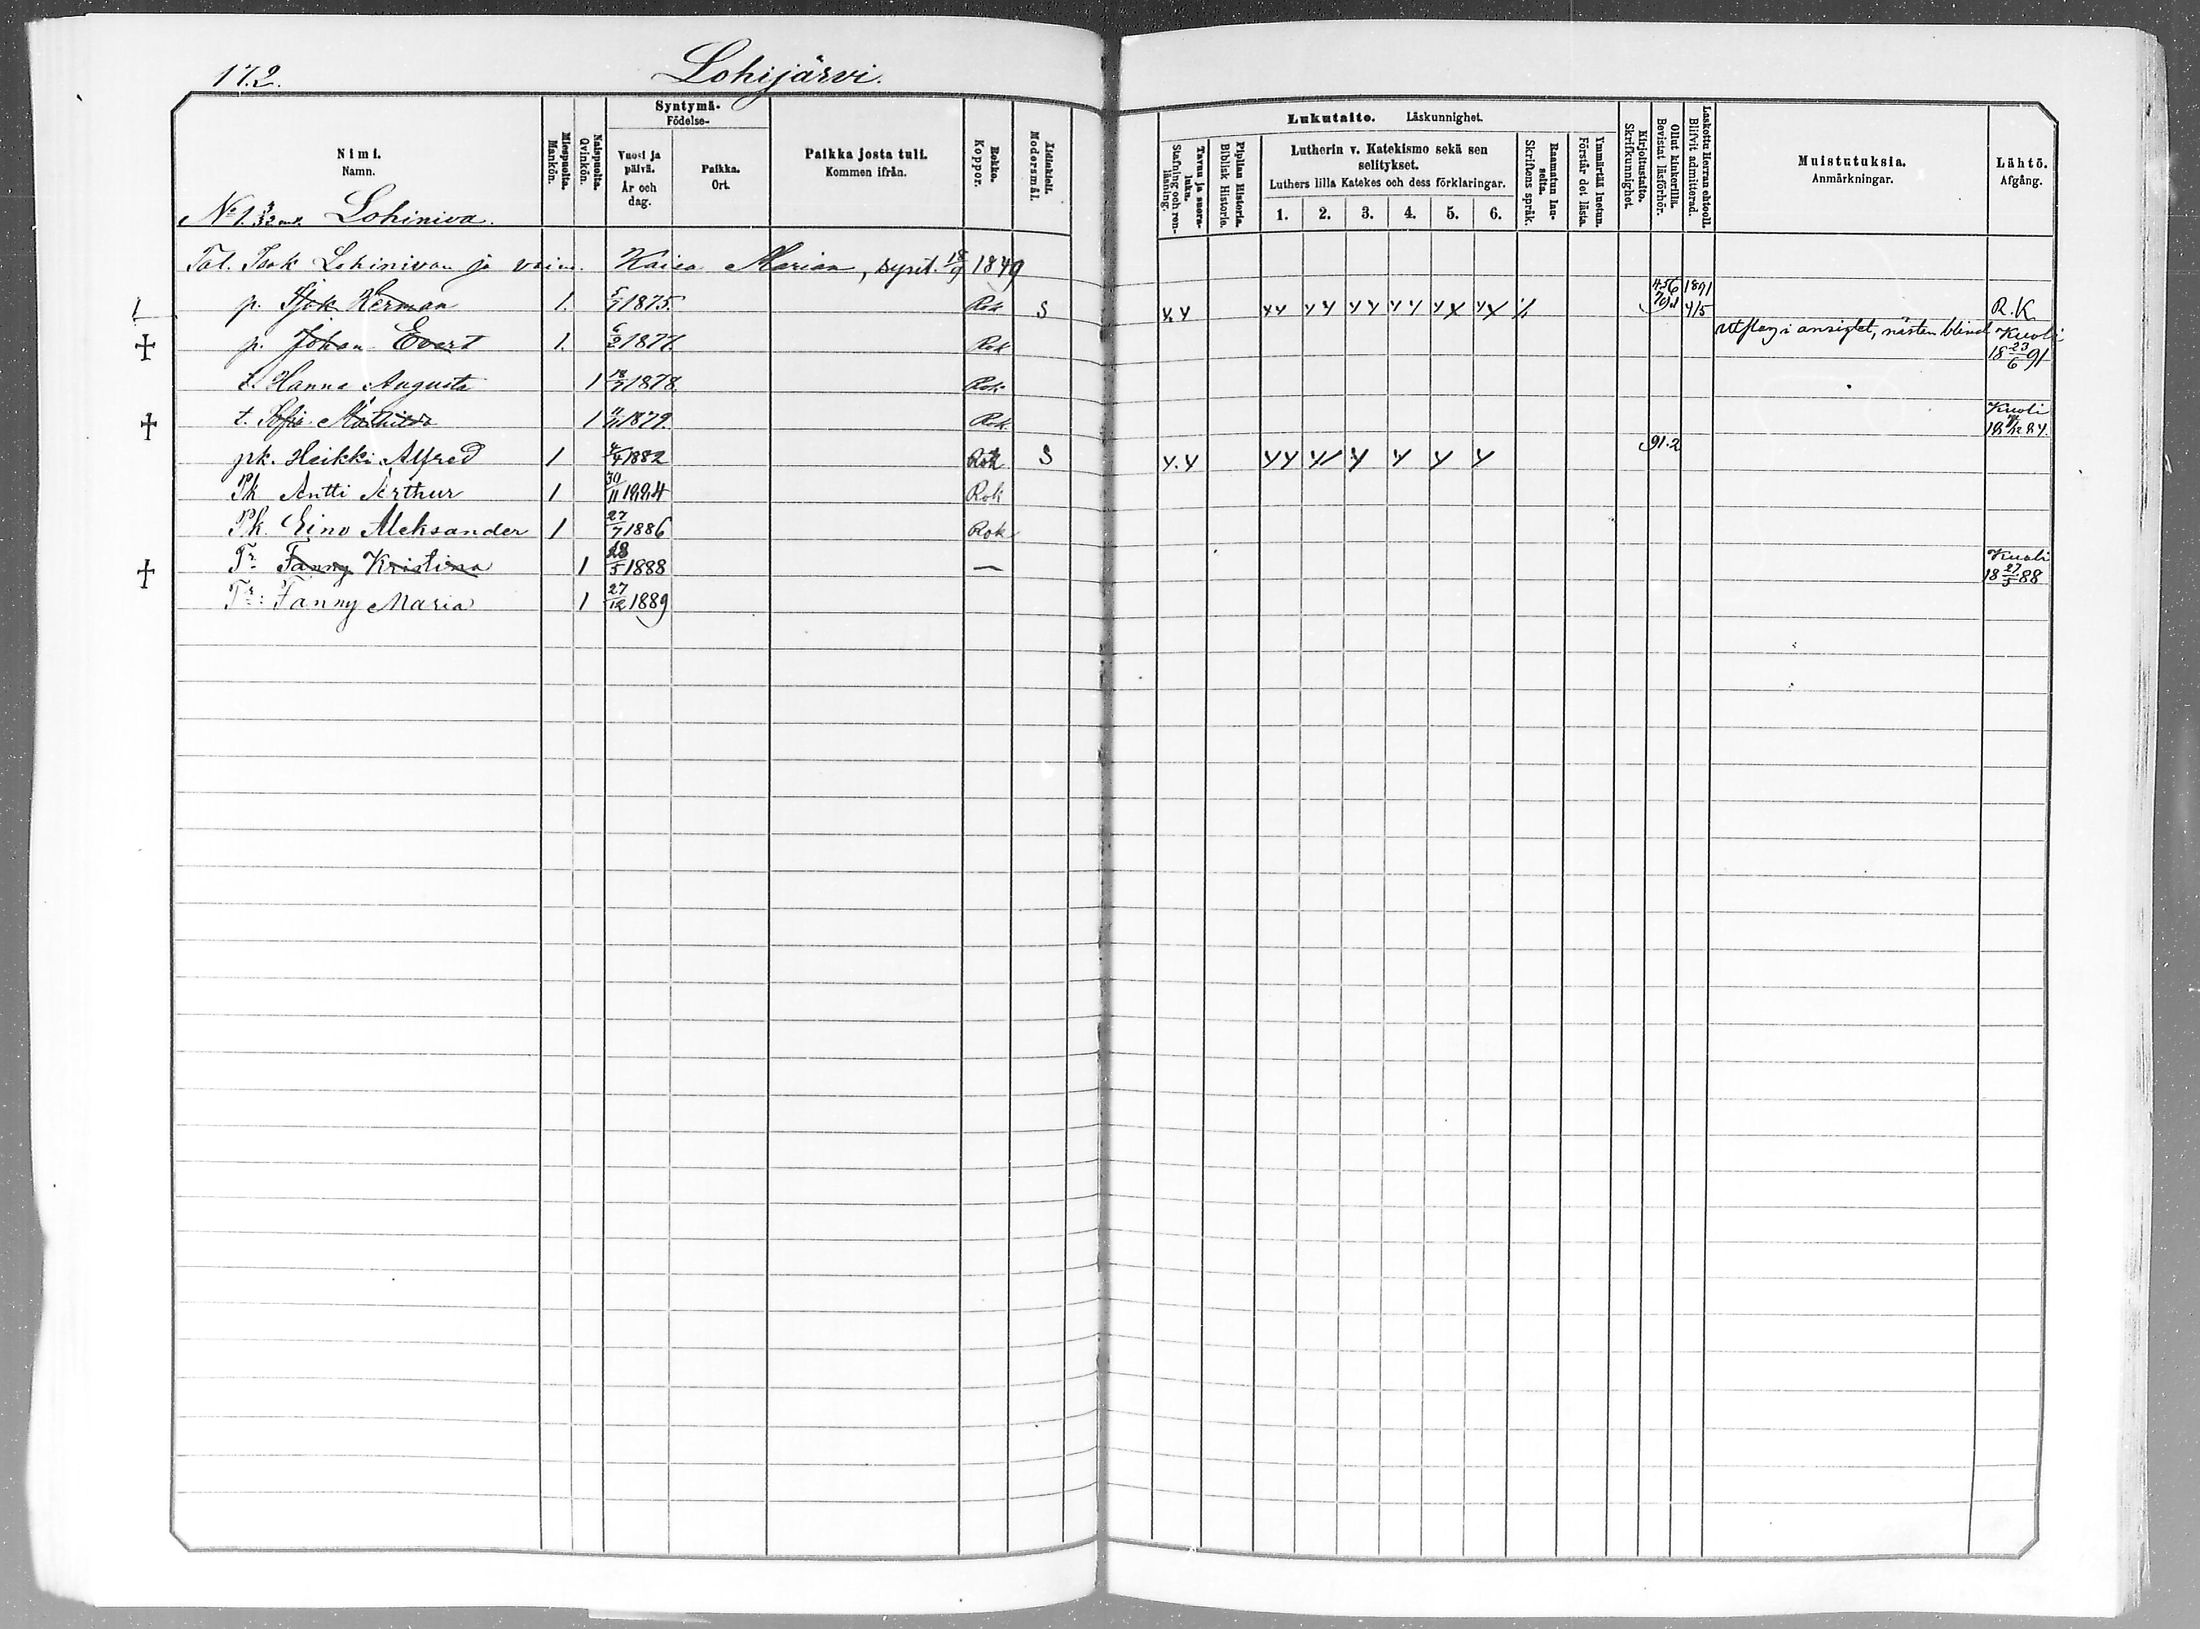 172. Lohijärvi.
Nimi. Namn.
Miespuolta. Mankön.
Naispuolta. Qvinkön.
Syntymä- Födelse-
Vuosi ja päivä. År och dag.
Paikka. Ort.
Paikka josta tuli. Kommen ifrån.
Rokko. Koppor.
Äidinkieli. Modersmål.
Lukutaito. Läskunnighet.
Tavuu ja suora- luku. Stafning och ren- läsning.
Piplian Historia. Biblisk Historie.
Lutherin v. Katekismo sekä sen selitykset.
Luthers lilla Katekes och dess förklaringar.
1. 2. 3. 4. 5. 6.
Raamatun lau- seita. Skriftens språk.
Ymmärtää luetun. Förstår det lästa.
Kirjoitustaito. Skrifkunnighet.
Ollut kinkerillä. Bevistat läsförhör.
Laskettu Herran ehtooll. Blifvit admitterad.
Muistutuksia. Anmärkningar.
Lähtö. Afgång.
No 1. Lohiniva.
Tal. Isak Lohinivan ja vaim. Kaisa Marian, synt. 18/9 1849
p. Isak Herman 1. 5/7 1875. Rok S y.y yy yy yy yy yx yx 1891 4/5 R.K
+ p. Johan Evert 1. 6/2 1877 Rok Utslag i ansigtet, nästen blind Kuoli 18 23/6 91
t. Hanna Augusta 1 18/7 1878 Rok
+ t. Sofia Mathilda 1 1879. Rok. Kuoli
pk. Heikki Alfred 1 1882 Rok S y.y yy y y y y 91.2
Pk Antti Arthur 1 30/11 1884 Rok
Pk. Eino Aleksander 1 27/7 1886 Rok
+ Tr Fanny Kristina 1 18/5 1888 — Kuoli 18 27/5 88
Tr: Fanny Maria 1 27/12 1889